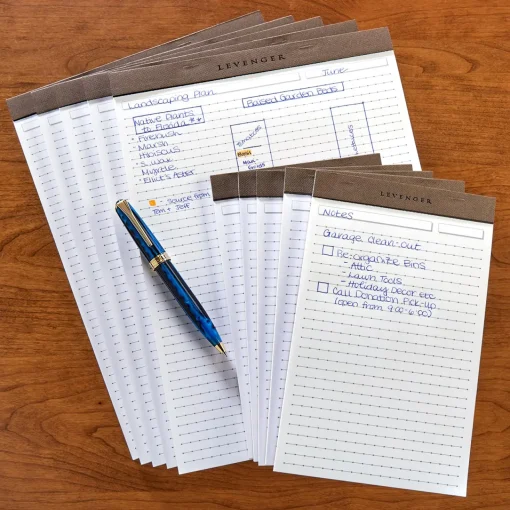 LEVENGER
Landscaping Plan
June
Native Plants
to Florida **
Raised Garden Beds
• Firebush
• Marsh
Hibiscus
• S. Wax
Myrtles
• Elliot's Aster
Tomatoes
Basil
LEVENGER
Notes
Garage Clean-out
Re-organize Bins
- Attic
- Lawn Tools
- Holiday Decor etc.
Call Donation Pick-up
(open from 9:00-6:00)